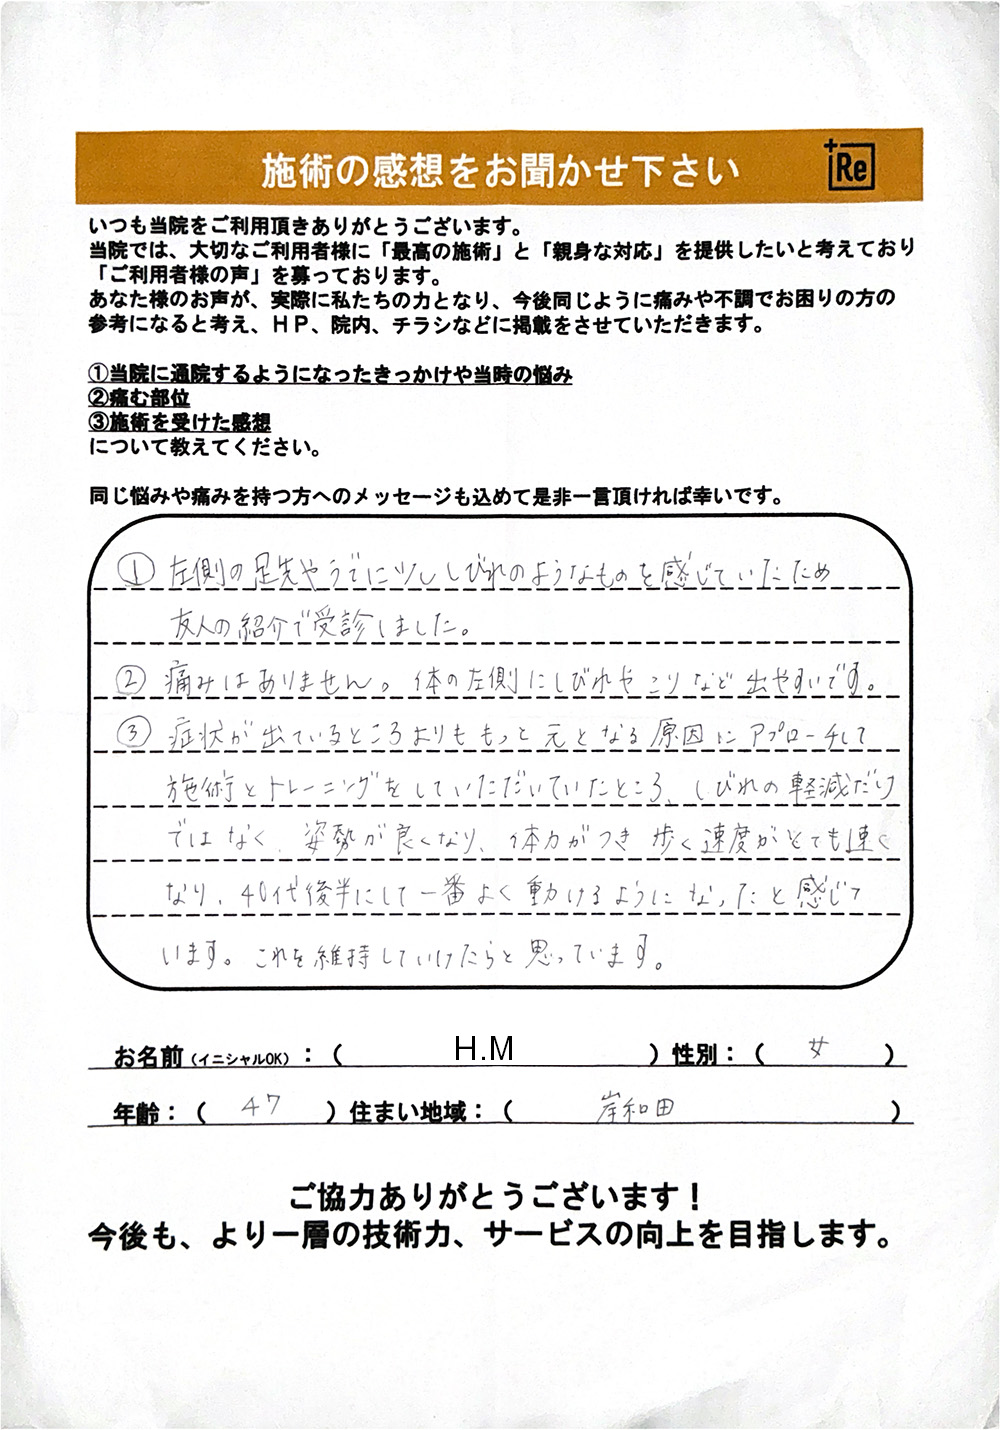 施術の感想をお聞かせ下さい
+Re
いつも当院をご利用頂きありがとうございます。
当院では、大切なご利用者様に「最高の施術」と「親身な対応」を提供したいと考えており
「ご利用者様の声」を募っております。
あなた様のお声が、実際に私たちの力となり、今後同じように痛みや不調でお困りの方の
参考になると考え、HP、院内、チラシなどに掲載をさせていただきます。
①当院に通院するようになったきっかけや当時の悩み
②痛む部位
③施術を受けた感想
について教えてください。
同じ悩みや痛みを持つ方へのメッセージも込めて是非一言頂ければ幸いです。
① 左側の足先やうでに少ししびれのようなものを感じていたため
友人の紹介で受診しました。
② 痛みはありません。体の左側にしびれやこりなど出やすいです。
③ 症状が出ているところよりももっと元となる原因にアプローチして
施術とトレーニングをしていただいていたところ、しびれの軽減だけ
ではなく、姿勢が良くなり、体力がつき歩く速度がとても速く
なり、40代後半にして一番よく動けるようになったと感じて
います。これを維持していけたらと思っています。
お名前(イニシャルOK):( H.M )性別:( 女 )
年齢:( 47 )住まい地域:( 岸和田 )
ご協力ありがとうございます!
今後も、より一層の技術力、サービスの向上を目指します。